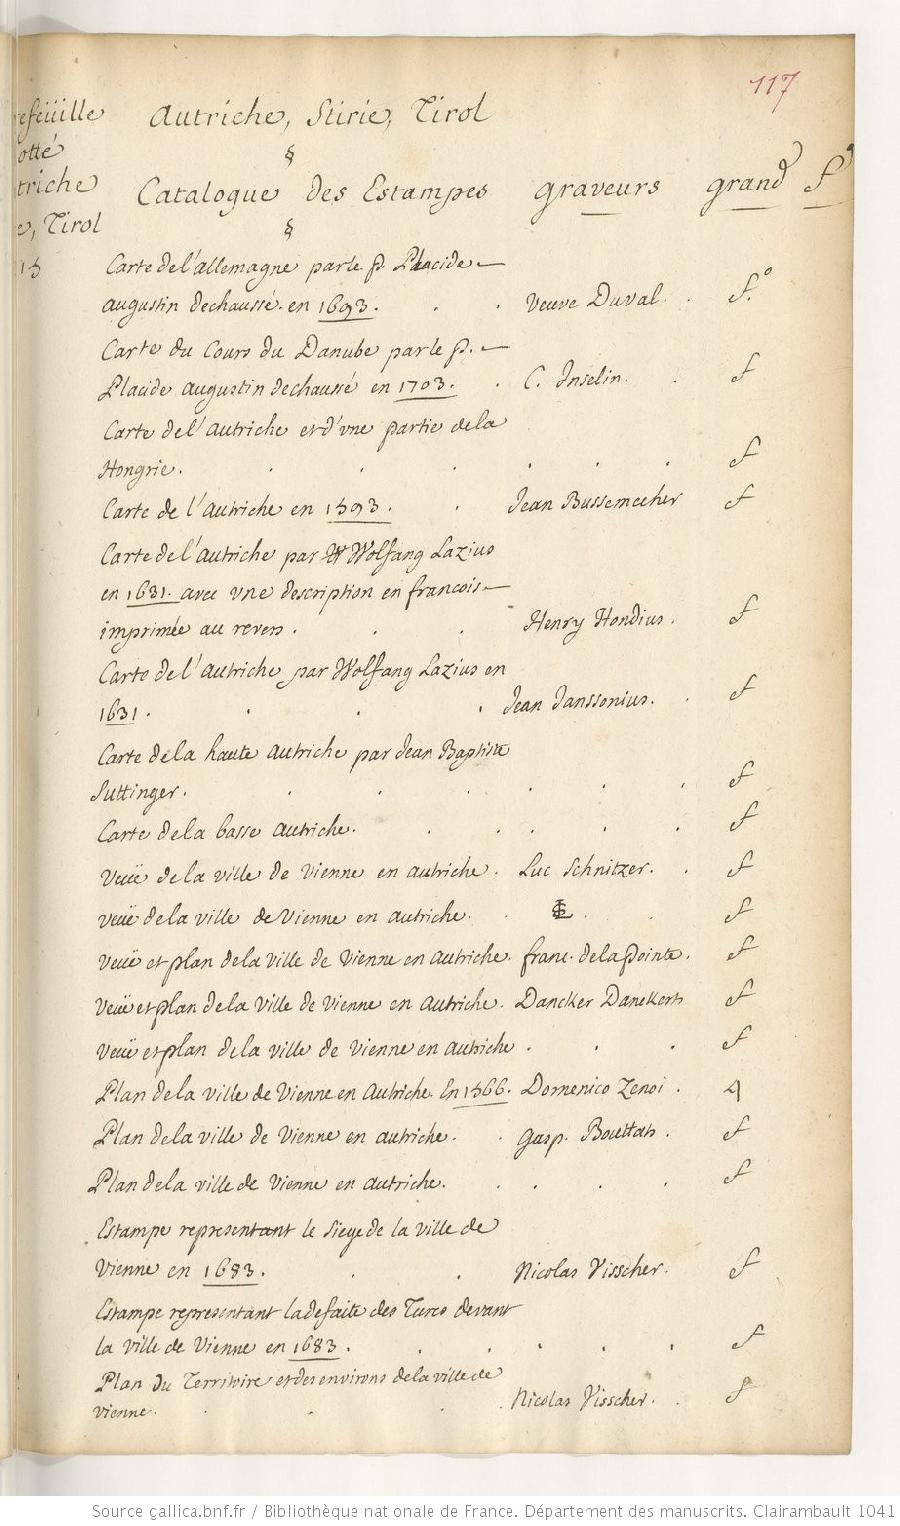 117
Autriche, Stirie, Tirol
§
Catalogue des Estampes graveurs grand f°
§
otté
triche
e, Tirol
15
Carte de l'allemagne par le p. Placide
augustin dechaussé. en 1693. Veuve Duval. f.°
Carte du Cours du Danube par le p.
Placide augustin dechaussé en 1703. C. Inselin. f
Carte de l'autriche et d'vne partie de la
Hongrie. f
Carte de l'autriche en 1593. Jean Bussemecher f
Carte de l'autriche par Wolfang Lazius
en 1631. avec vne description en francois
imprimée au revers. Henry Hondius. f
Carte de l'autriche par Wolfang Lazius en
1631. Jean Janssonius. f
Carte de la haute autriche par Jean Baptiste
Suttinger. f
Carte de la basse autriche. f
Veuë de la ville de Vienne en autriche. Luc Schnitzer. f
veuë de la ville de Vienne en autriche. f
Veuë et plan de la ville de Vienne en autriche. franc. de la pointe. f
Veuë et plan de la ville de Vienne en autriche. Dancker Danckerts f
Veuë et plan de la ville de Vienne en autriche. f
Plan de la ville de Vienne en Autriche. En 1566. Domenico Zenoi. 4
Plan de la ville de Vienne en autriche. Gasp. Bouttats. f
Plan de la ville de Vienne en autriche. f
Estampe representant le siege de la ville de
Vienne en 1683. Nicolas Visscher. f
Estampe representant la defaite des Turcs devant
la ville de Vienne en 1683. f
Plan du Territoire et des environs de la ville de
Vienne. Nicolas Visscher. f
Source gallica.bnf.fr / Bibliothèque nationale de France. Département des manuscrits. Clairambault 1041